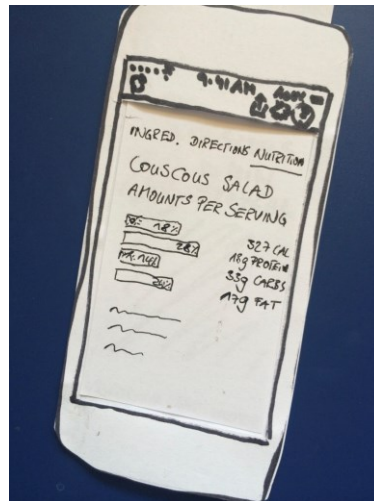 9:41 AM
INGRED. DIRECTIONS NUTRITION
COUSCOUS SALAD
AMOUNTS PER SERVING
18%
327 CAL
28%
18g PROTEIN
14%
33g CARBS
17g FAT